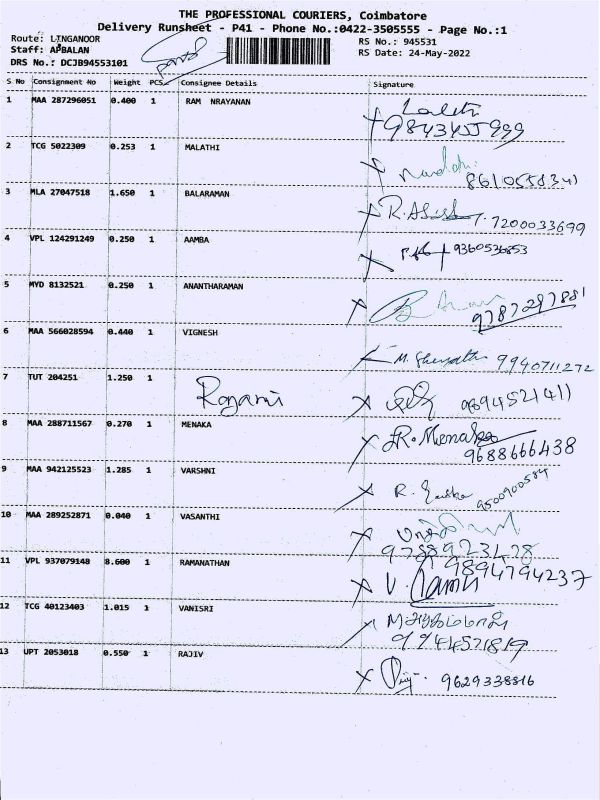 THE PROFESSIONAL COURIERS, Coimbatore
Delivery Runsheet - P41 - Phone No.:0422-3505555 - Page No.:1
Route: LINGANOOR RS No.: 945531
Staff: APBALAN RS Date: 24-May-2022
DRS No.: DCJB94553101
S No Consignment No Weight PCS Consignee Details Signature
1 MAA 287296051 0.400 1 RAM NRAYANAN Lalith
9843455999
2 TCG 5022309 0.253 1 MALATHI
8610558341
3 MLA 27047518 1.650 1 BALARAMAN R. 7200033699
4 VPL 124291249 0.250 1 AAMBA 9360536853
5 MYD 8132521 0.250 1 ANANTHARAMAN
9787297881
6 MAA 566028594 0.440 1 VIGNESH M. 9940711272
7 TUT 204251 1.250 1 Rogami 9694521411
8 MAA 288711567 0.270 1 MENAKA R. Menaka
9688666438
9 MAA 942125523 1.285 1 VARSHNI R. 9500900584
10 MAA 289252871 0.040 1 VASANTHI
9788923428
11 VPL 937079148 8.600 1 RAMANATHAN 9894794237
V.
12 TCG 40123403 1.015 1 VANISRI
9944521819
13 UPT 2053018 0.550 1 RAJIV 9629338816